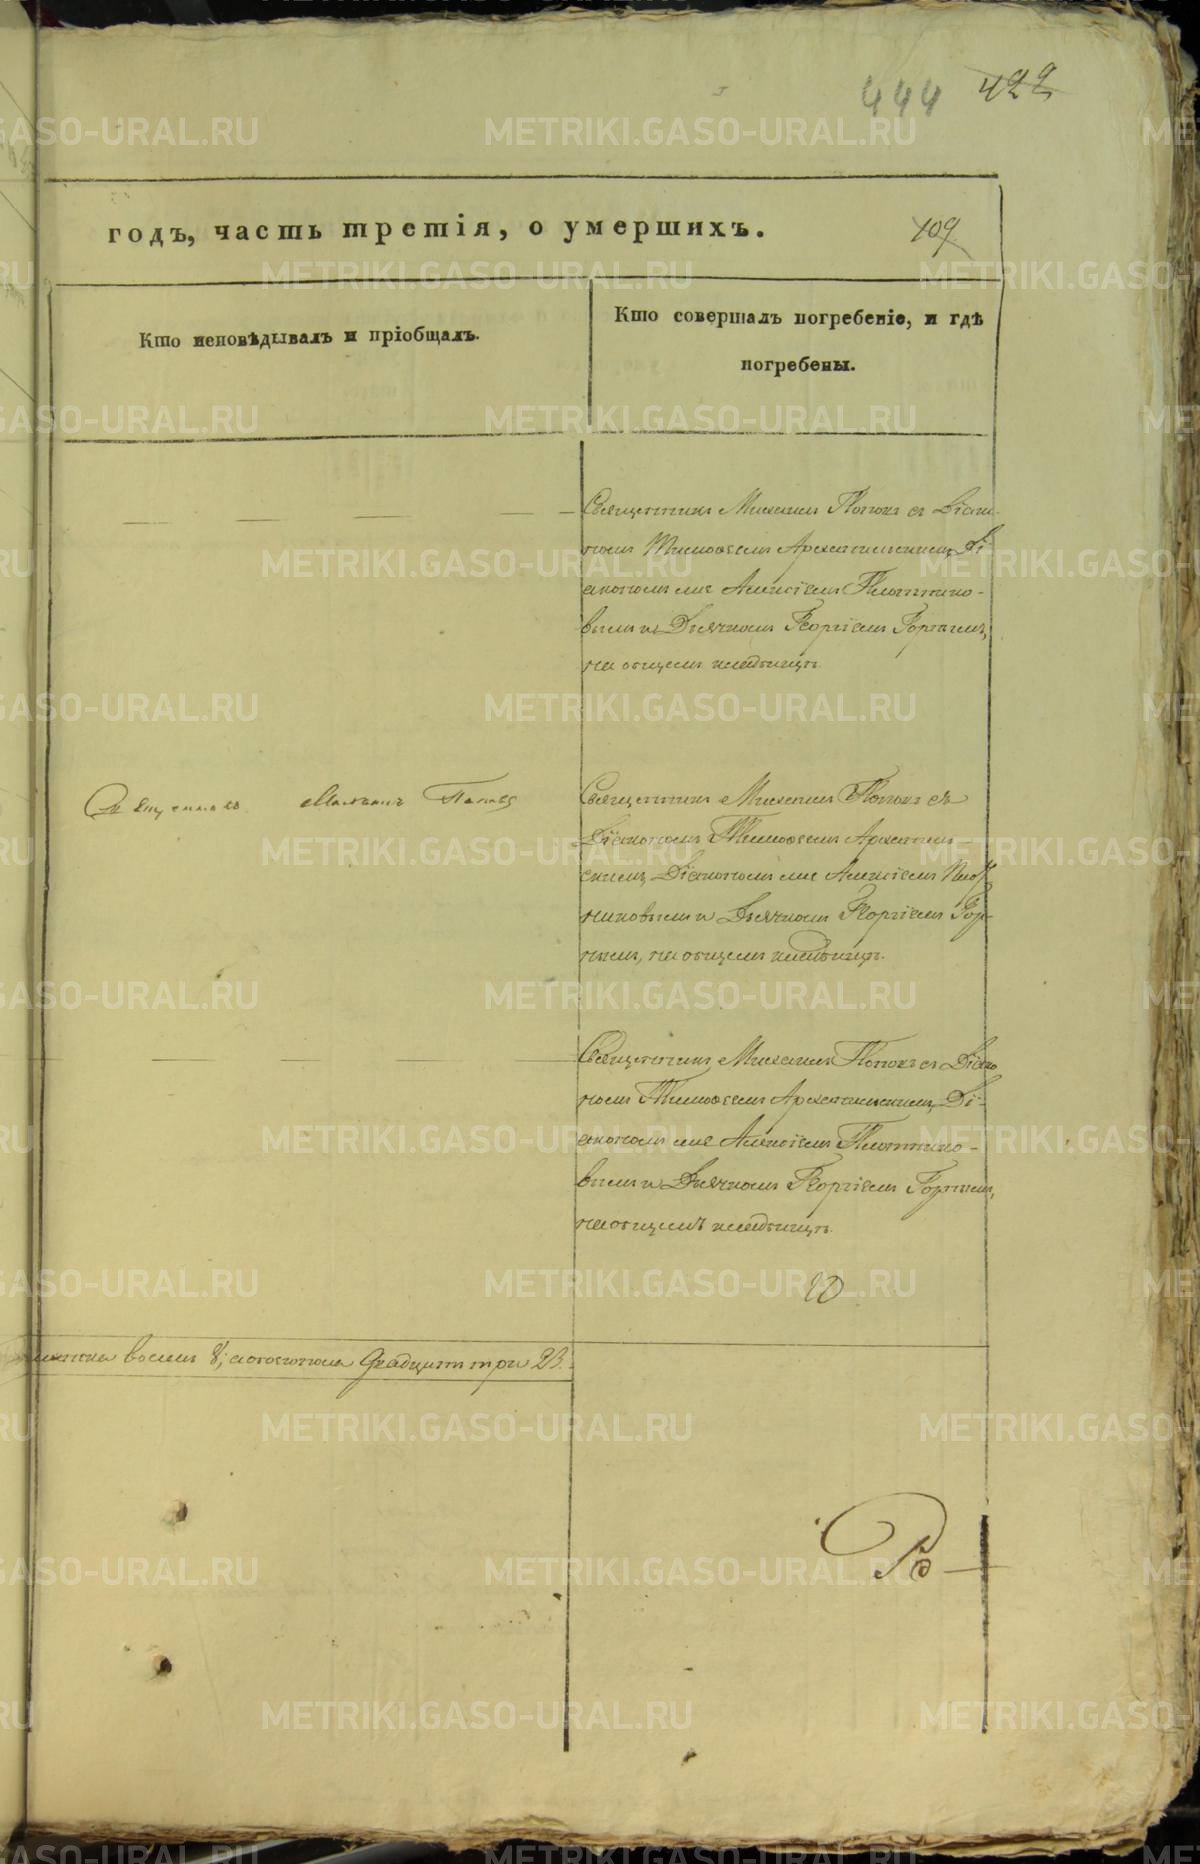 444 422
годъ, часть третія, о умершихъ. 109
Кто исповѣдывалъ и пріобщалъ.
Кто совершалъ погребеніе, и гдѣ
погребены.
Священникъ Михаилъ Поповъ съ Діако-
номъ Тимофеемъ Архангельскимъ, Ді-
акономъ же Алексіемъ Плотнико-
вымъ и Дьячкомъ Георгіемъ Горнымъ,
на общемъ кладбищѣ.
Священникъ Михаилъ Поповъ
Священникъ Михаилъ Поповъ съ
Діакономъ Тимофеемъ Архангель-
скимъ, Діакономъ же Алексіемъ Плот-
никовымъ и Дьячкомъ Георгіемъ Гор-
нымъ, на общемъ кладбищѣ.
Священникъ Михаилъ Поповъ съ Діако-
номъ Тимофеемъ Архангельскимъ, Ді-
акономъ же Алексіемъ Плотнико-
вымъ и Дьячкомъ Георгіемъ Горнымъ,
на общемъ кладбищѣ.
восемь 8, а обоего пола двадцать три 23.
METRIKI.GASO-URAL.RU